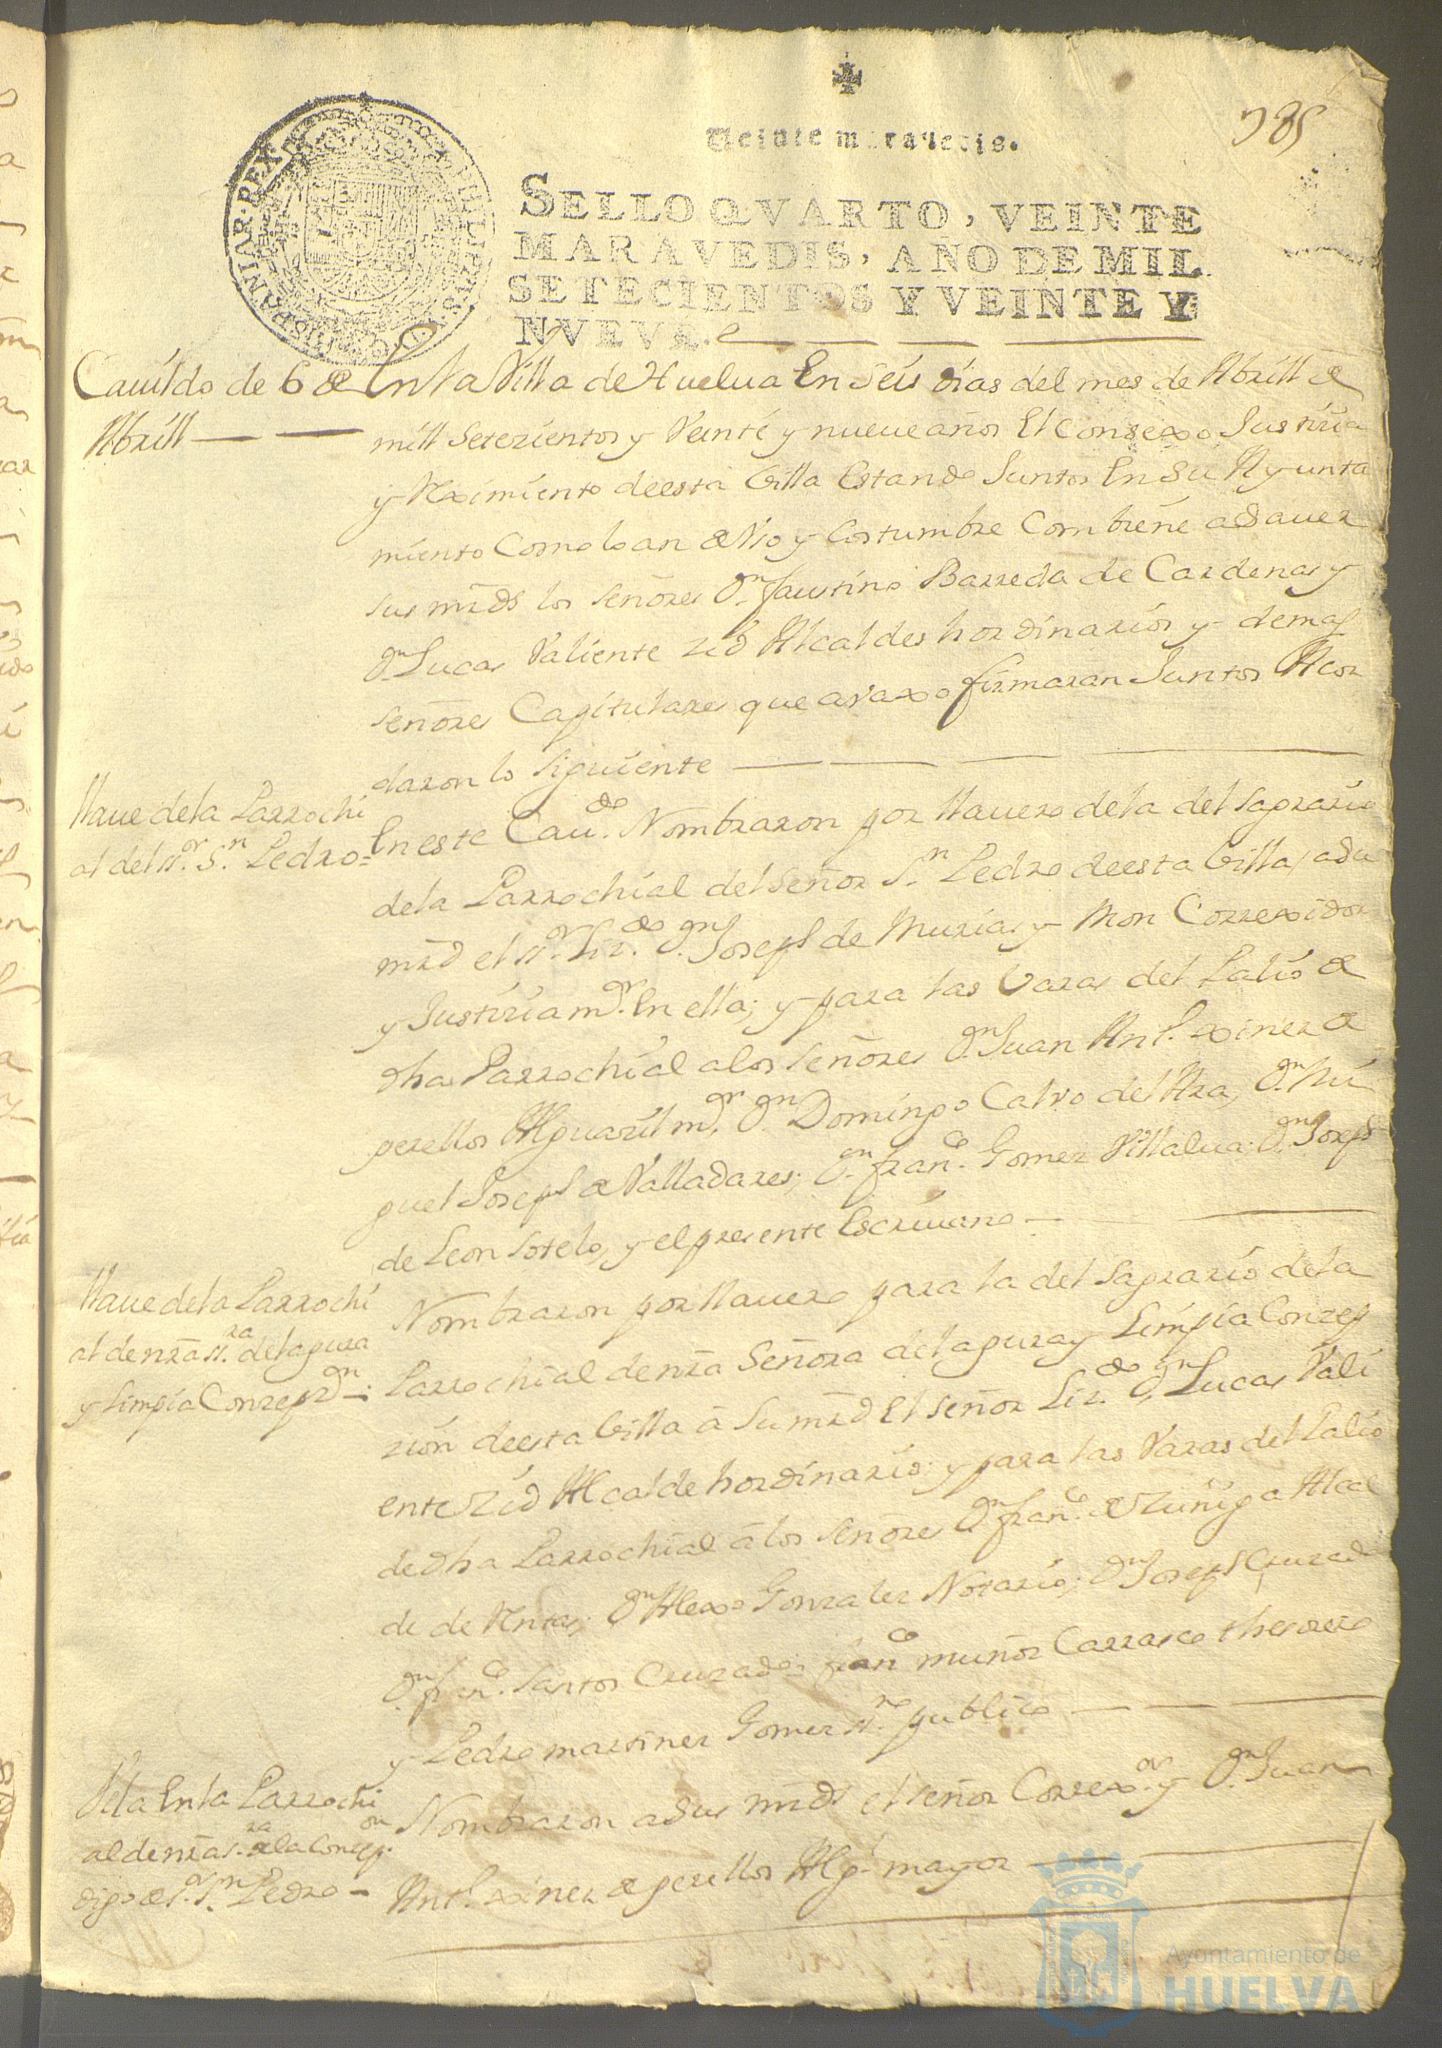 385
Veinte maravedis.
SELLO QVARTO, VEINTE
MARAVEDIS, AÑO DE MIL
SETECIENTOS Y VEINTE Y
NVEVE.
HISPANIAR·REX
Cauildo de 6 de
Abrill
En la Villa de Huelua En Seis dias del mes de Abrill de
mill Setezientos y Veinte y nueue años El Consexo Justizia
y Reximiento de esta Villa Estando Juntos En Su Ayunta
miento Como lo an de Vso y Costumbre Combiene a Sauer
sus mrds los Señores Dn. faustino Barreda de Cardenas y
Dn. Lucas Valiente zid Alcaldes hordinarios y demas
Señores Capitulares que avaxo firmaran Juntos Acor
daron lo Siguiente
llaue de la Parrochi
al del Sr. Sn. Pedro=
En este Caudo. Nombraron por llauero de la del Sagrario
de la Parrochial del Señor Sn. Pedro de esta Villa, a Su
mrd el Sr. Lizdo. Dn. Joseph de Murias y Mon Correxidor
y Justizia mor. En ella; y para las Varas del Palio de
dha Parrochial a los Señores Dn. Juan Antt. Ximenez de
perellos Alguazil mor. Dn. Domingo Calvo del Hra, Dn. Mi
guel Joseph de Valladares; Dn. franco. Gomez Villalua; Dn. Joseph
de Leon Sotelo, y el presente Escriuano
llaue de la Parrochi
al de nra Sra. de la pura
y Limpia Conzepzn.
Nombraron por llauero para la del Sagrario de la
Parrochial de nra Señora de la pura y Limpia Conzep
zion de esta Villa a Su mrd El Señor Lizdo. Dn. Lucas Vali
ente Zid Alcalde hordinario; y para las Varas del Palio
de dha Parrochial a los Señores Dn. franco. de Zuñiga Alcal
de de Rentas; Dn. Alexo Gonzalez Notario; Dn. Joseph Cruzado
Dn. franco. Santos Cruzado; franco muñoz Carrasco thesorero
y Pedro martinez Gomez Sno. publico
Vela En la Parrochi
al de nra Sra. de la Conzepon.
digo de Sr. Sn. Pedro
Nombraron a Sus mrds el Señor Correxor. y Dn. Juan
Antt. Ximenez de perellos Algl. mayor
Ayuntamiento de
HUELVA